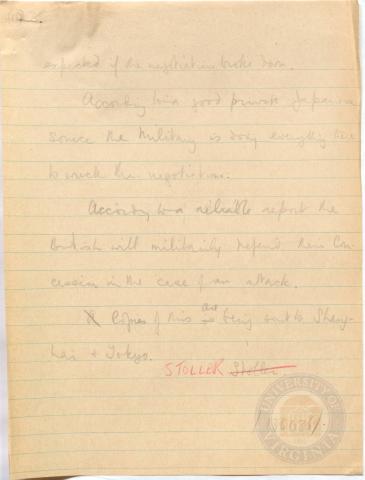 expected if the negotiations broke down.
According to a good private Japanese
source the Military is doing everything
to wreck the negotiations.
According to a reliable report the
British will militarily defend their Con-
cession in the case of an attack.
Copies of this are being sent to Shang-
hai + Tokyo.
STOLLER Stoller
UNIVERSITY OF VIRGINIA